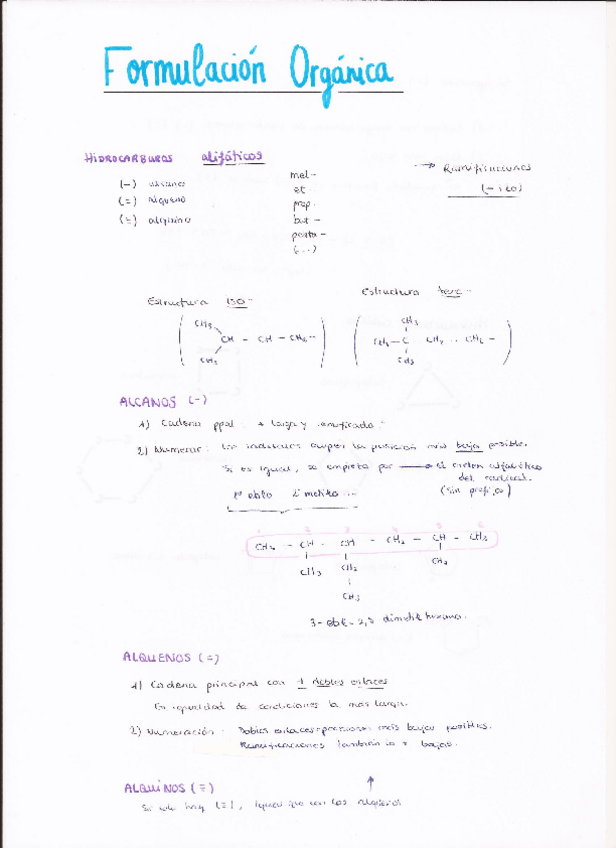 Formulación Orgánica
HIDROCARBUROS alifáticos
(-) alcano
(=) alqueno
(≡) alquino
met-
et
prop-
but-
penta-
(...)
→ Ramificaciones
(-ilo)
Estructura iso-
CH3
CH - CH - CH2 -
CH3
Estructura terc-
CH3
CH3 - C CH2 .. CH2 -
CH3
ALCANOS (-)
1) Cadena ppal: + larga y ramificada.
2) Numerar: Los radicales ocupan la posición más baja posible.
Si es igual, se empieza por → el orden alfabético
del radical.
(sin prefijos)
1º etilo 2º metilo ...
1 2 3 4 5 6
CH3 - CH - CH - CH2 - CH - CH3
CH3 CH2 CH3
CH3
3-etil-2,5 dimetilhexano.
ALQUENOS (=)
1) Cadena principal con + dobles enlaces
En igualdad de condiciones la más larga.
2) Numeración: Dobles enlaces posiciones más bajas posibles.
Ramificaciones también lo + bajas.
ALQUINOS (≡)
Si solo hay (≡), igual que con los alquenos